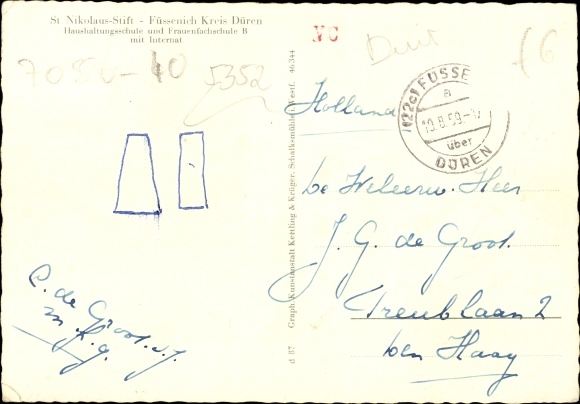 St Nikolaus-Stift - Füssenich Kreis Düren
Haushaltungsschule und Frauenfachschule B
mit Internat
7050-40
5352
NC
Duit
(6
(22c) FUSSE
a
19.8.59
über
DÜREN
Holland
Graph. Kunstanstalt Kettling & Krüger, Schalksmühle i. Westf. 46344
d 87
J. G. de Groot.
Treublaan 2
den Haag
C. de Groot. s.j.
m.f.g.